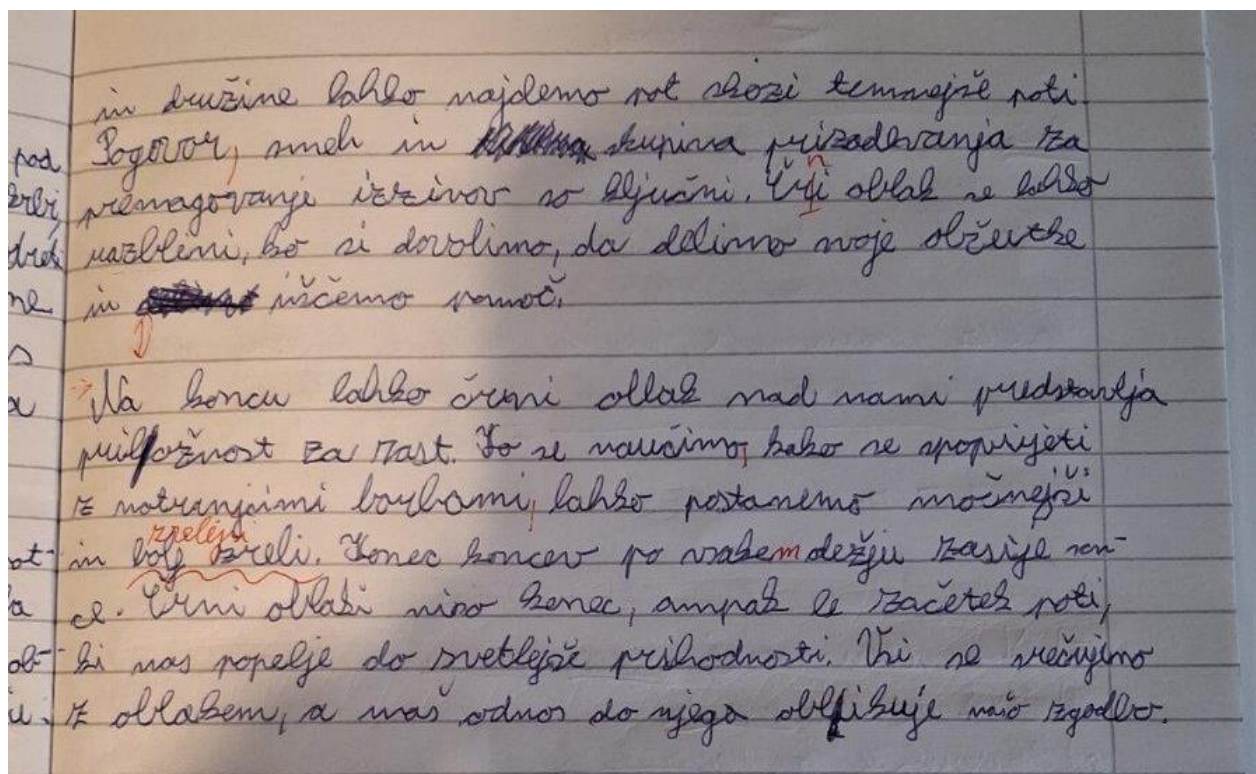 in družine lahko najdemo pot skozi temnejše poti.
pod Pogovor, smeh in skupina prizadevanja za
premagovanje izzivov so ključni. Črni oblak se lahko
razblini, ko si dovolimo, da delimo svoje občutke
ne in iščemo pomoč.
s
a Na koncu lahko črni oblak nad nami predstavlja
priložnost za rast. Ko se naučimo, kako se spoprijeti
z notranjimi borbami, lahko postanemo močnejši
zrelejši
in bolj zreli. Konec koncev po vsakem dežju zasije son-
a ce. Črni oblaki niso konec, ampak le začetek poti,
ob- ki nas popelje do svetlejše prihodnosti. Vsi se srečujemo
z oblakom, a naš odnos do njega oblikuje našo zgodbo.